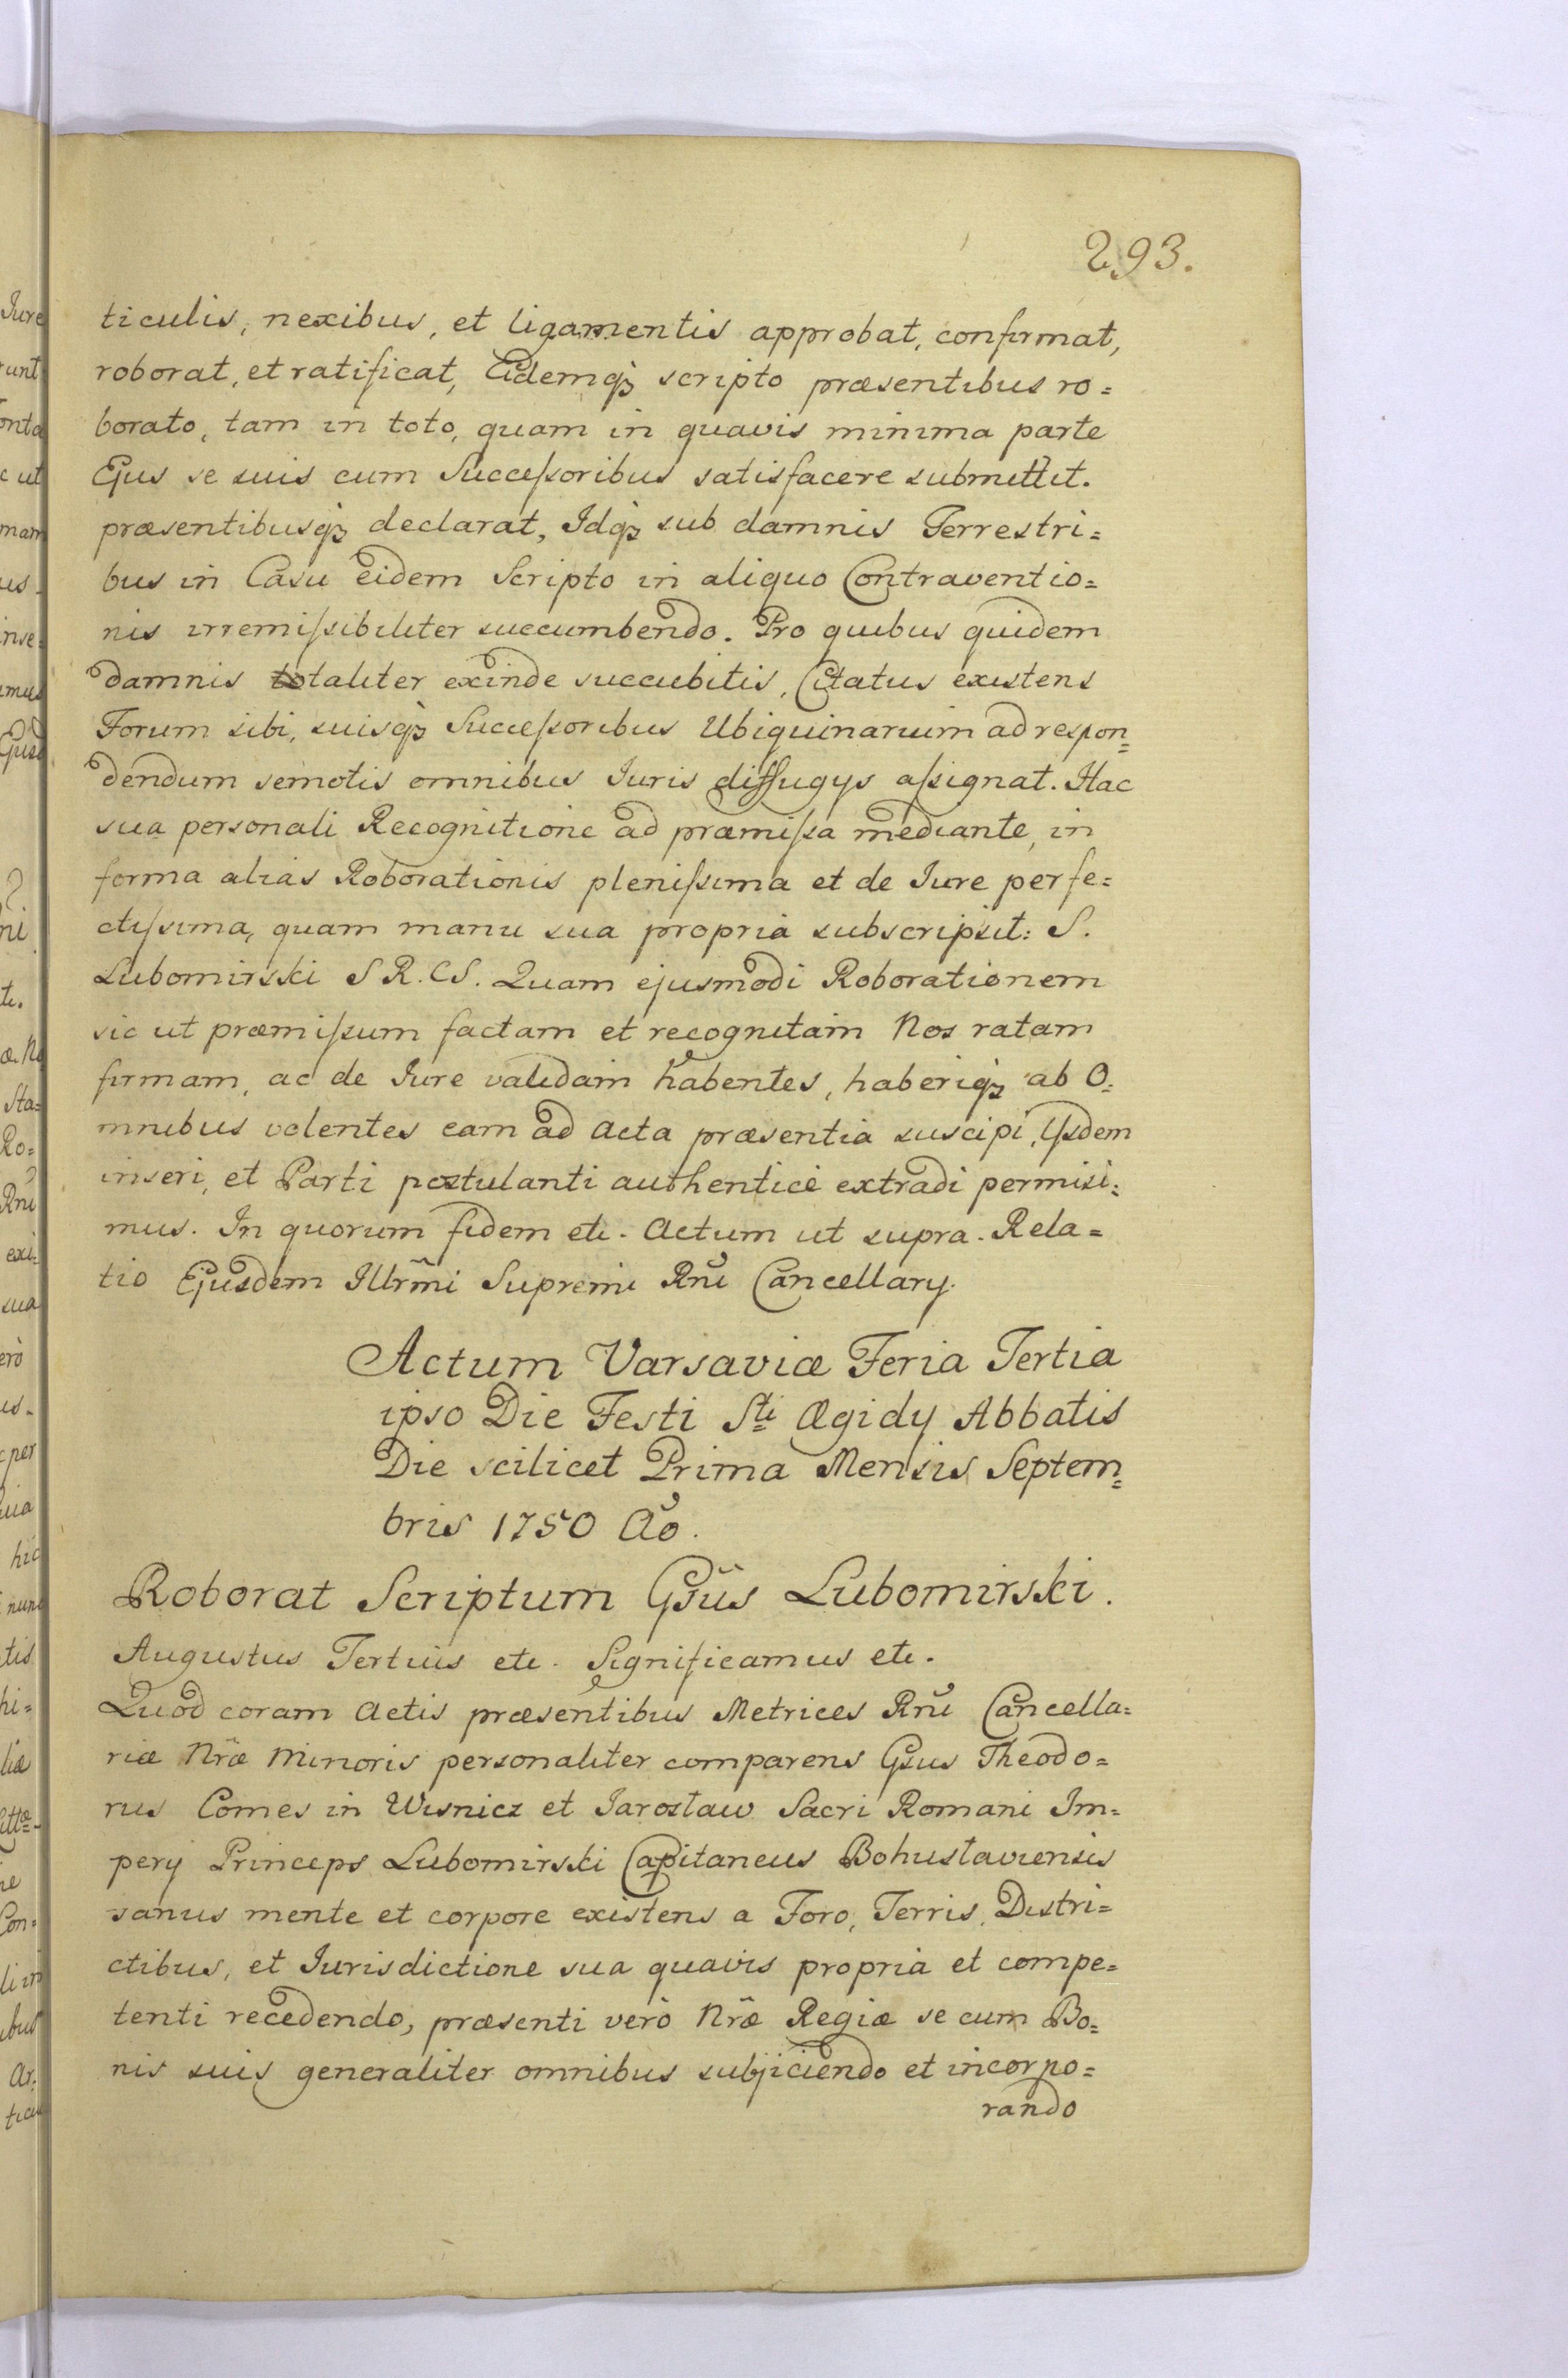 293.
ticulis, nexibus, et ligamentis approbat, confirmat,
roborat, et ratificat, Eidemq₃ scripto præsentibus ro=
borato, tam in toto, quam in quavis minima parte
Ejus se suis cum Succeſsoribus satisfacere submittit.
præsentibusq₃ declarat, Idq₃ sub damnis Terrestri=
bus in Casu eidem Scripto in aliquo Contraventio=
nis irremiſsibiliter succumbendo. Pro quibus quidem
damnis totaliter exinde succubitis, Citatus existens
Forum sibi, suisq₃ Succeſsoribus Ubiquinarium ad respon=
dendum semotis omnibus Iuris diffugys aſsignat. Hac
sua personali Recognitione ad præmiſsa mediante, in
forma alias Roborationis pleniſsima et de Iure perfe=
ctiſsima, quam manu sua propria subscripsit: S.
Lubomirski S R. CS. Quam ejusmodi Roborationem
sic ut præmiſsum factam et recognitam Nos ratam
firmam, ac de Iure validam habentes, haberiq₃ ab O=
mnibus volentes eam ad Acta præsentia suscipi, Iysdem
inseri, et Parti postulanti authentice extradi permisi=
mus. In quorum fidem etc. Actum ut supra. Rela=
tio Ejusdem Illr̃mi Supremi Rni Cancellary.
Actum Varsaviæ Feria Tertia
ipso Die Festi Sti Ægidy Abbatis
Die scilicet Prima Mensis Septem=
bris 1750 Ao.
Roborat Scriptum Gsus Lubomirski.
Augustus Tertius etc. Significamus etc.
Quod coram Actis præsentibus Metrices Rni Cancella=
riæ Nr̃æ Minoris personaliter comparens Gsus Theodo=
rus Comes in Wisnicz et Jarosław Sacri Romani Im=
pery Princeps Lubomirski Capitaneus Bohuslaviensis
sanus mente et corpore existens a Foro, Terris, Distri=
ctibus, et Iurisdictione sua quavis propria et compe=
tenti recedendo, præsenti verò Nr̃æ Regiæ se cum Bo=
nis suis generaliter omnibus subjiciendo et incorpo=
rando